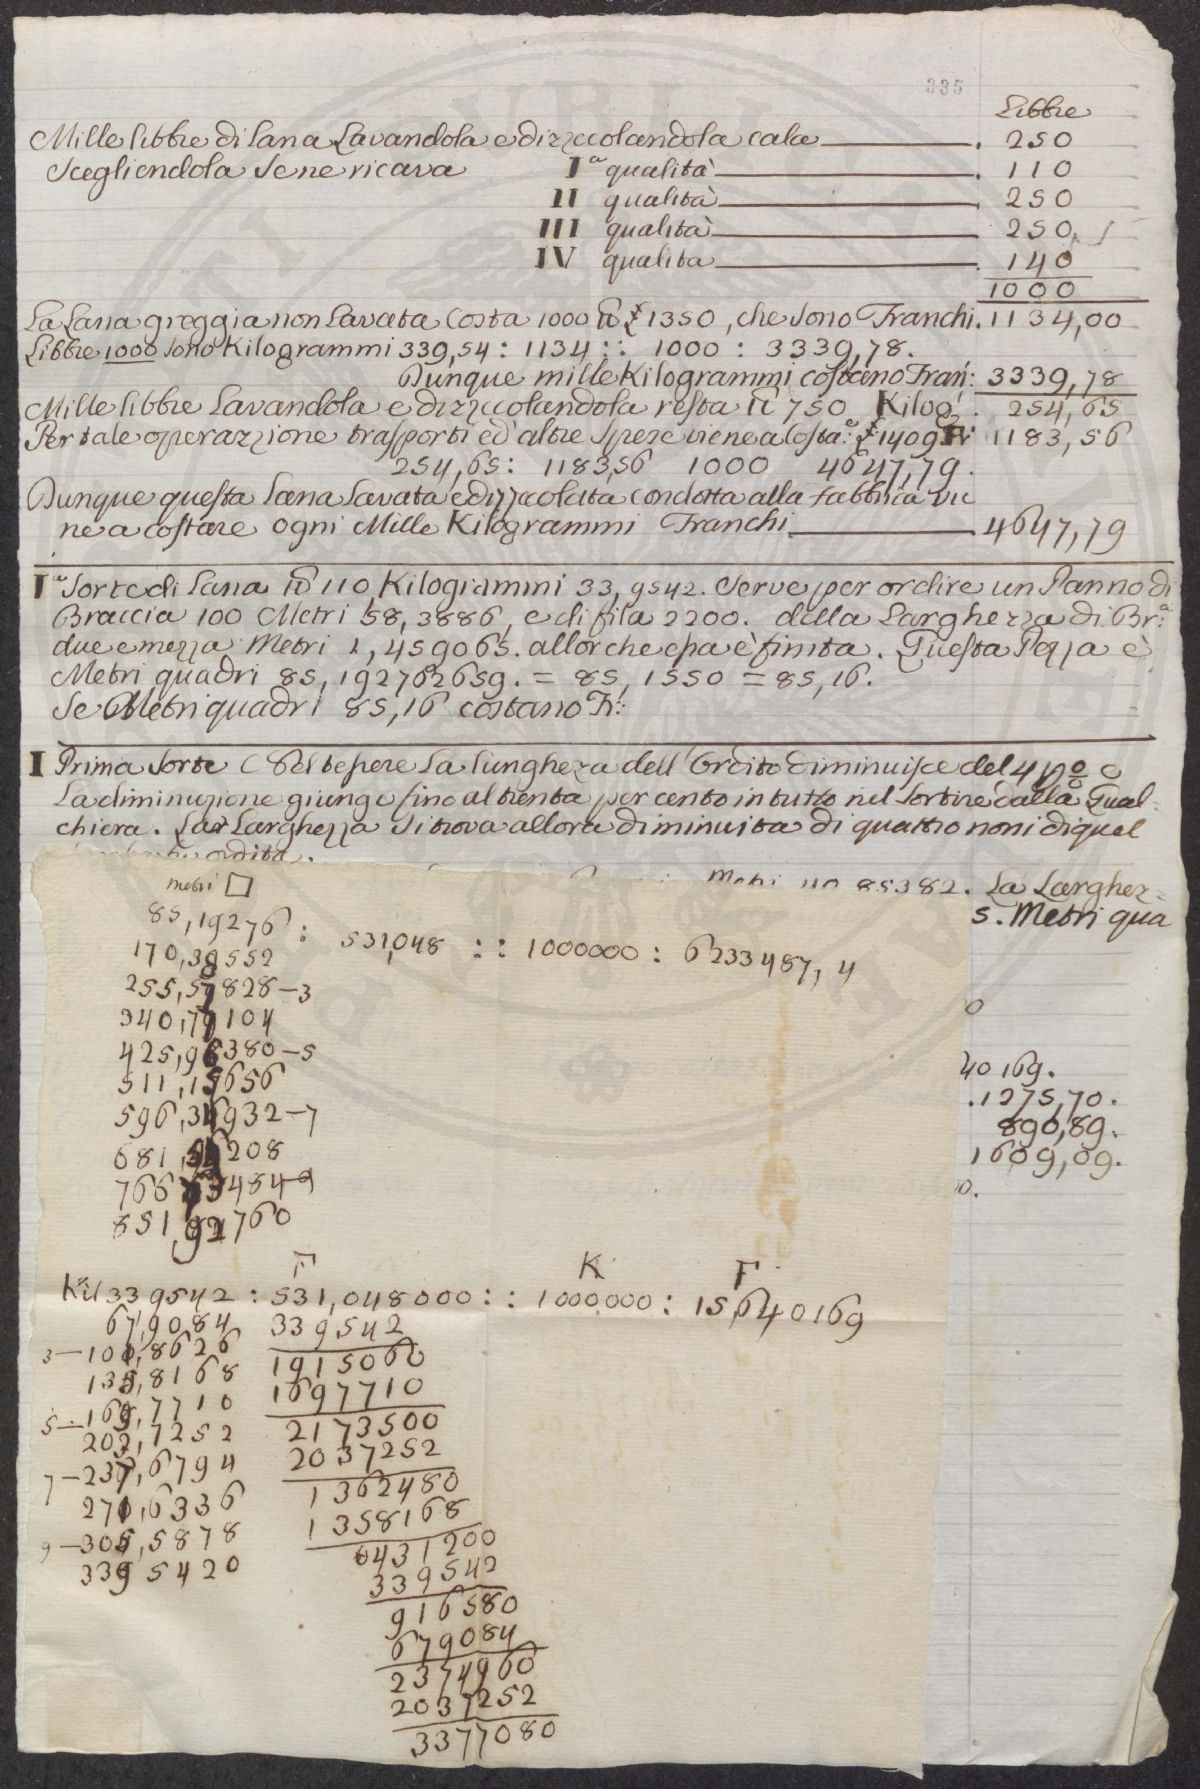 335
Libbre
Mille libbre di Lana Lavandola e dizzecolandola cala . 250
Scegliendola se ne ricava Iª qualità . 110
II qualità . 250
III qualità 250
IV qualità . 140
1000
La Lana greggia non Lavata Costa 1000 £ 1350, che sono Franchi. 1134,00
Libbre 1000 sono Kilogrammi 339,54 : 1134 :: 1000 : 3339,78.
Dunque mille Kilogrammi costano Fran: 3339,78
Mille libbre Lavandola e dizzecolandola resta 750 Kilog. 254,65
Per tale operazione trasporti ed altre spese viene a Costa: £ 1409 Fr 1183,56
254,65: 1183,56 1000 4647,79.
Dunque questa Lana Lavata e dizzecolata condotta alla fabbrica vie
ne a costare ogni Mille Kilogrammi Franchi 4647,79
Iª Sorte di Lana 110, Kilogrammi 33,9542. Serve per ordire un Panno di
Braccia 100 Metri 58,3886, e di fila 2200. della Larghezza di Brª
due e mezza Metri 1,459065. allorche essa è finita. Questa Pezza è
Metri quadri 85,192762659. = 85,1550 = 85,16.
Se Metri quadri 85,16 costano Fr:
I Prima Sorte Pel tessere La lunghezza dell'Ordito diminuisce del 4 p% e
La diminuzione giunge fino al trenta per cento in tutto nel Sortire dalla Qual-
chiera. La Larghezza si trova allora diminuita di quattro noni di quel
ordita.
Metri 110 85382. La Larghez-
s. Metri qua
metri □
85,19276 : 531,048 :: 1000000 : 6233487,4
170,38552
255,57828-3
340,77104
425,96380-5
511,15656
596,34932-7
681,54208
766,73484-9
851,92760
0
40169.
.1275,70.
890,89.
1609,09.
0.
F K F
Kil 339542 : 531,048000 :: 1000000 : 15,640169
67,9084 339,542
3-101,8626 1915060
135,8168 1697710
5-169,7710 2173500
203,7252 2037252
7-237,6794 1362480
271,6336 1358168
9-305,5878 0431200
339 5420 339542
916580
679084
2374960
2037252
3377080